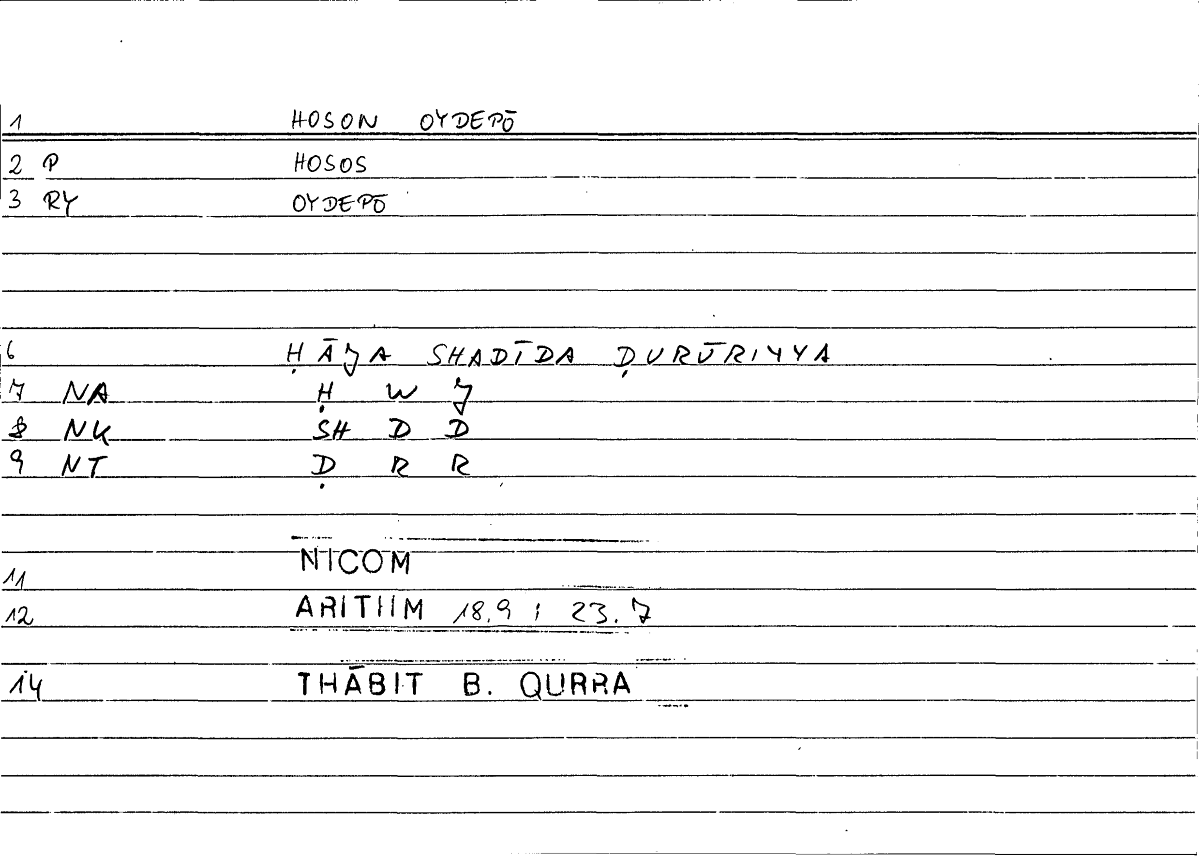 1 HOSON OYDEPŌ
2 P HOSOS
3 RY OYDEPŌ
6 ḤĀJA SHADĪDA ḌURŪRIYYA
7 NA Ḥ W J
8 NK SH D D
9 NT Ḍ R R
11 NICOM
12 ARITIIM 18.9 ; 23.7
14 THĀBIT B. QURRA